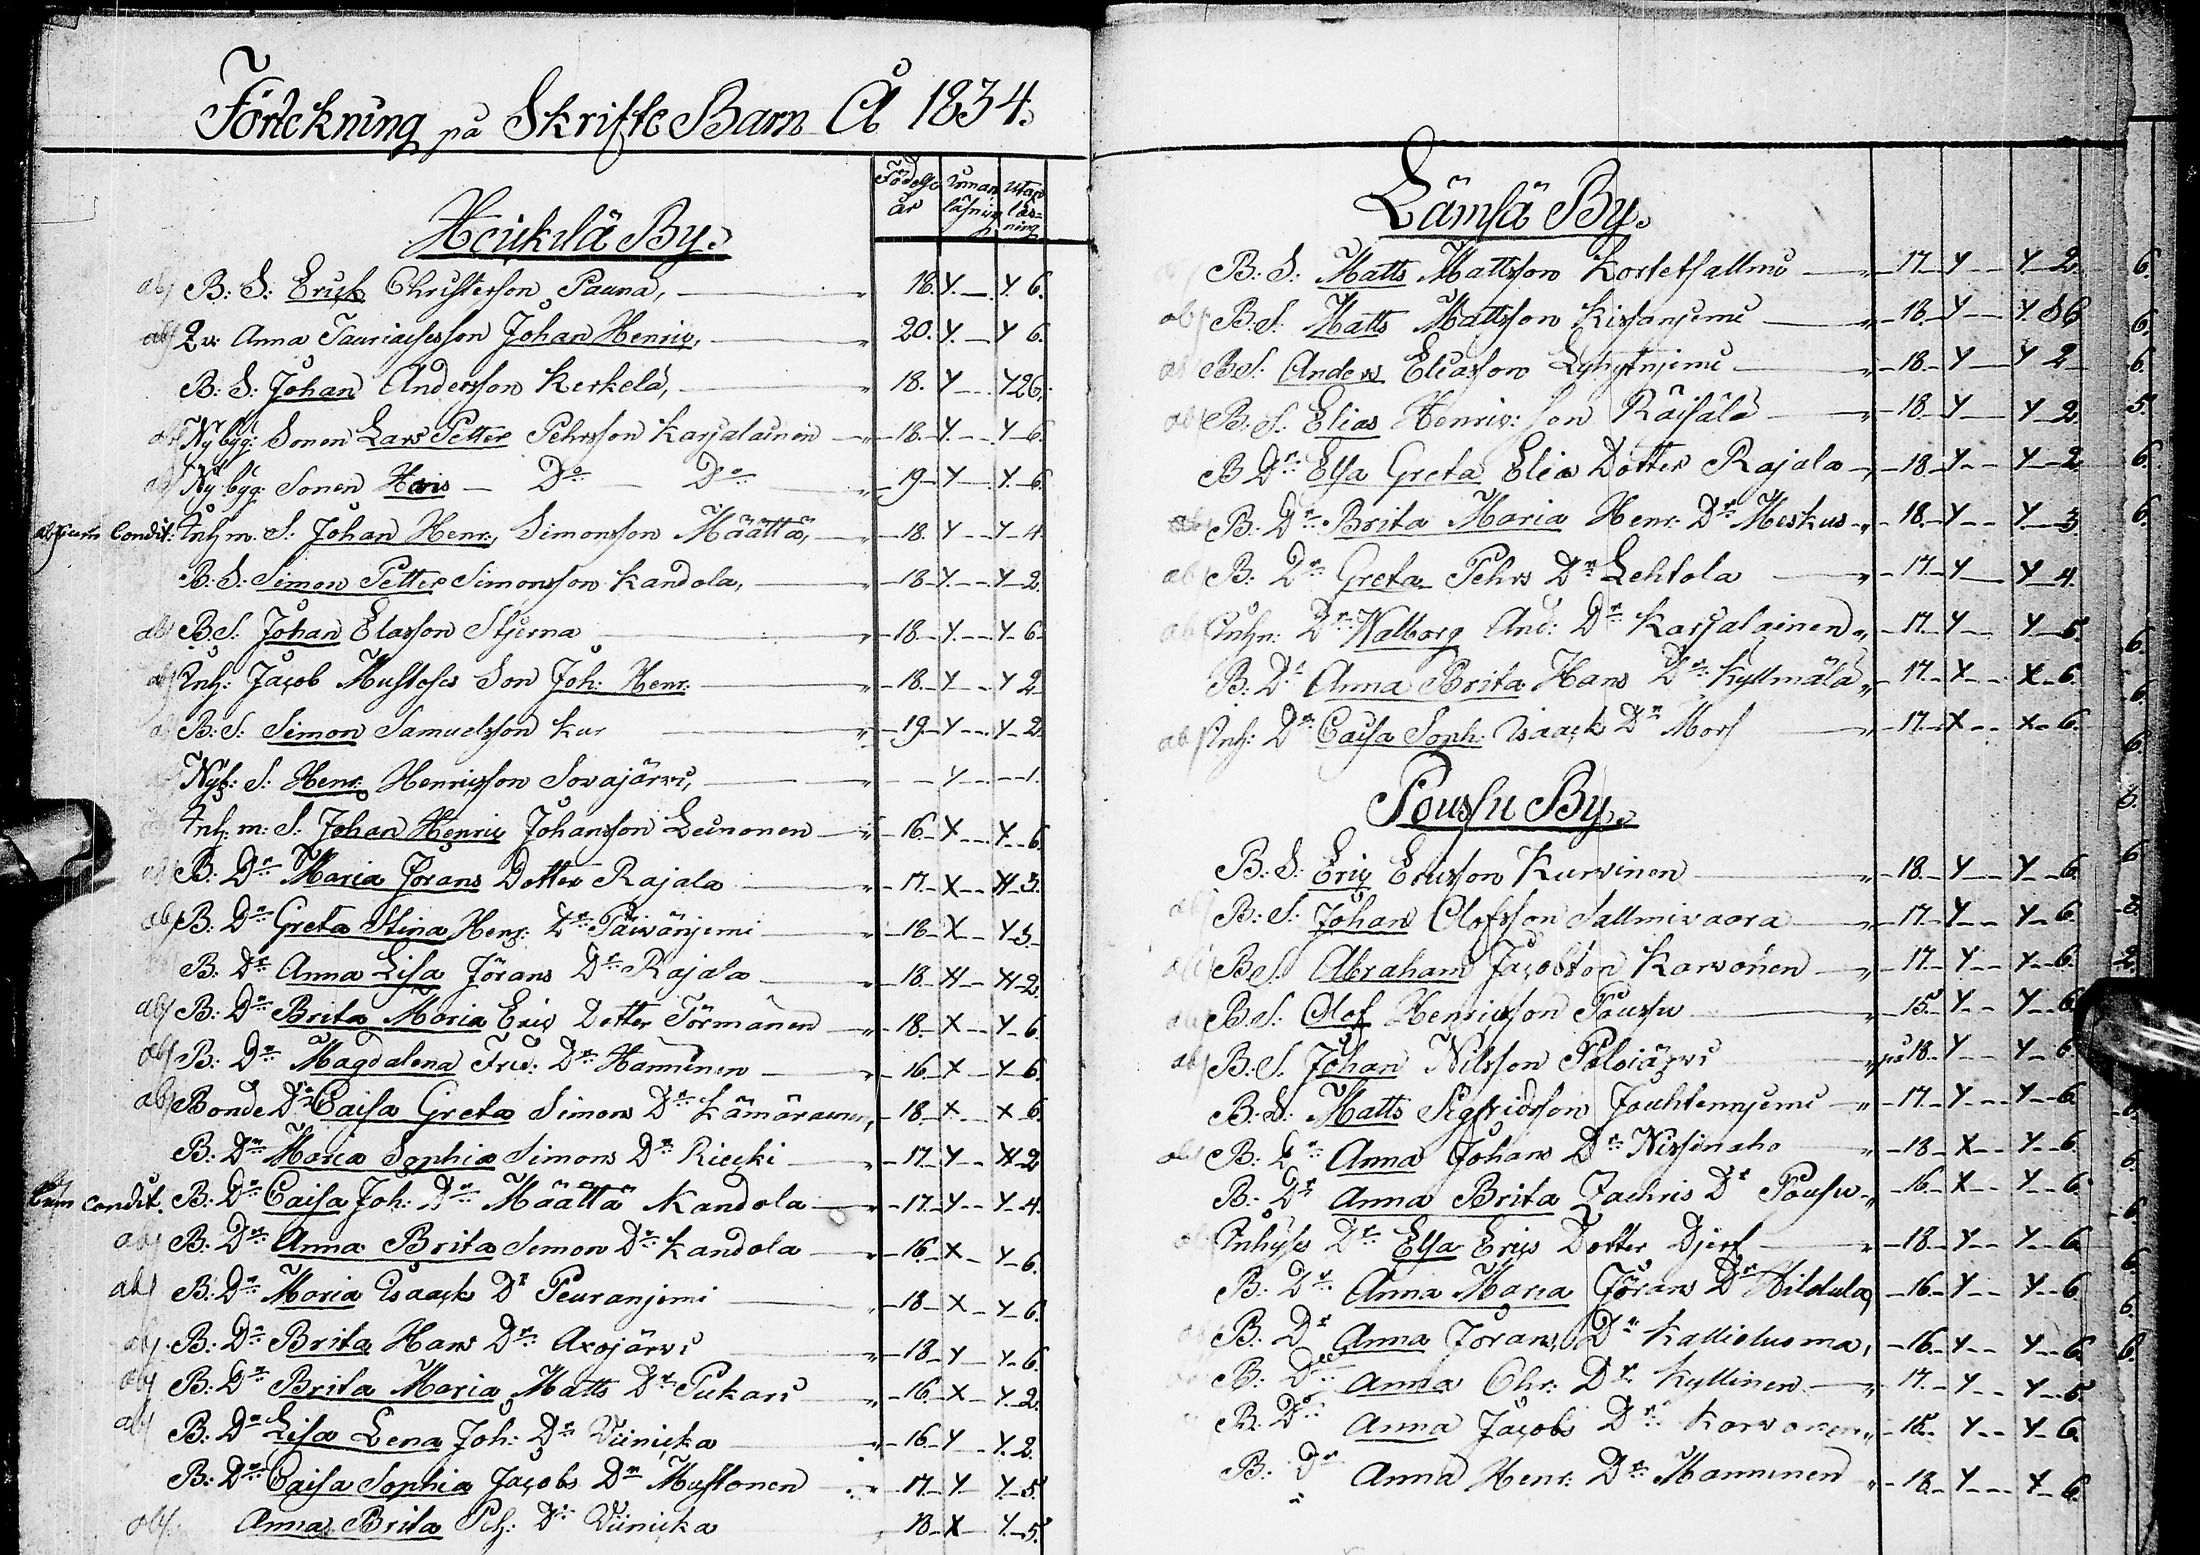 Förtekning på Skrifte Barn Å 1834.
Födelse år
Innan läsning
Utan läsning
Heikilä By.
abs B: S: Erick Christersson Pauna, 18. Y. Y. 6.
abs Anna Johan Henric, 20. Y. Y 6.
B: S: Johan Andersson Kerkelä, 18. Y Y 26.
abs Nybyg: Sonen Lars Petter Pehrsson Karjalainen 18. Y. Y 6.
abs Nybyg: Sonen Hans Do Do 19 Y Y. 6.
abs cum Condit: Inh m. S. Johan Henr, Simonsson Määttä, 18. Y Y 4.
B. S: Simon Petter Simonsson Kandola, 18 Y. Y 2.
abs B.S. Johan Elasson Stjerna 18. Y. Y 6.
abs Inh: Jacob Son Joh: Henr: 18. Y Y 2
B: S: Simon Samuelsson Kur 19 Y Y 2.
Nyb: S: Henr: Henricsson Sovajärvi, Y 1.
Inh. m: S: Johan Henric Johansson Leinonen 16 X Y 6.
B: Dr Maria Jörans Dotter Rajala 17. X X 3.
abs B: Dr Greta Stina Henr: Dr Päivänjemi 18 X Y 3.
B: Dr Anna Lisa Jörans Dr Rajala 18. X X 2.
abs B: Dr Brita Maria Eric Dotter Törmänen 18. X Y 6.
abs B: Dr Magdalena Fred: Dr Hanninen 16 X Y 6.
abs Bonde Dr Caisa Greta Simons Dr Kämäräinen, 18. X X 6.
B: Dr Maria Sophia Simons Dr Riecki 17. Y X 2
Cum condit. B: Dr Caisa Joh: Dr Määttä Kandola 17. Y Y 4.
abs B: Dr Anna Brita Simon Dr Kandola 16. X Y 6.
abs B: Dr Maria Isaacks Dr Peuranjemi 18 X Y 6.
abs B: Dr Brita Hans Dr Axojärvi 18 Y Y 6.
abs B: Dr Brita Maria Matts Dr Pukari 16. X Y 2.
abs B: Dr Lisa Lena Joh: Dr Viinicka 16 Y Y. 2.
B: Dr Caisa Sophia Jacobs Dr Mustonen 17 Y Y. 5.
abs. Anna Brita Peh: Dr Viinicka 18 X Y 5
Lämsä By.
B: S: Matts Mattsson Kortetsallmi 17 Y Y 2
abs B: S: Matts Mattsson Kissanjemi 18. Y Y. 6
abs BS: Anders Eliasson Lyhytnjemi 18. Y Y 2
abs B: S: Elias Henric: son Räisälä 18. Y Y 2.
B Dr Elsa Greta Elia Dotter Rajala 18 Y Y 2
abs B: Dr Brita Maria Henr: Dr Meskus 18. Y Y 3
abs B: Dr Greta Pehrs Dr Lehtola 17. Y Y 4.
abs Inhn: Dr Walborg And: Dr Karjalainen 17. Y Y 5.
B: Dr Anna Brita Hans Dr Kyllmälä 17. X X 6.
abs Inh: Dr Caisa Soph. Isaack Dr Mors 17. X X 6.
Poussu By.
B: S: Eric Ericsson Kurvinen 18. Y Y 6.
abs B: S: Johan Olofsson Sallmivaara 17. Y Y 6.
B S: Abraham Jacobson Karvonen 17. Y Y 6.
BS: Olof Henricsson Poussu 15. Y Y 6
abs B: S. Johan Nilsson Poloiärvi på 18. Y Y 6
B: S: Matts Sigfridsson Jouhtennjemi 17. Y Y 6
abs B: Dr Anna Johans Dr Nissinaho 18 X Y 6.
B: Dr Anna Brita Zachris Dr Pousu 16. X Y 6
Inhyses Dr Elsa Erics Dotter Djerf 18 Y Y 6
B: Dr Anna Maria Jörans Dr Hildula, 16. Y Y 6
B: Dr Anna Jörans, Dr Kallioluoma, 16. Y Y 6.
B: Dr Anna Chr: Dr Kyllinen 17. Y Y 5
B. Dr Anna Jacobs Dr Karvonen 18. Y Y 6.
B: Dr Anna Henr: Dr Manninen 18. Y Y 6.